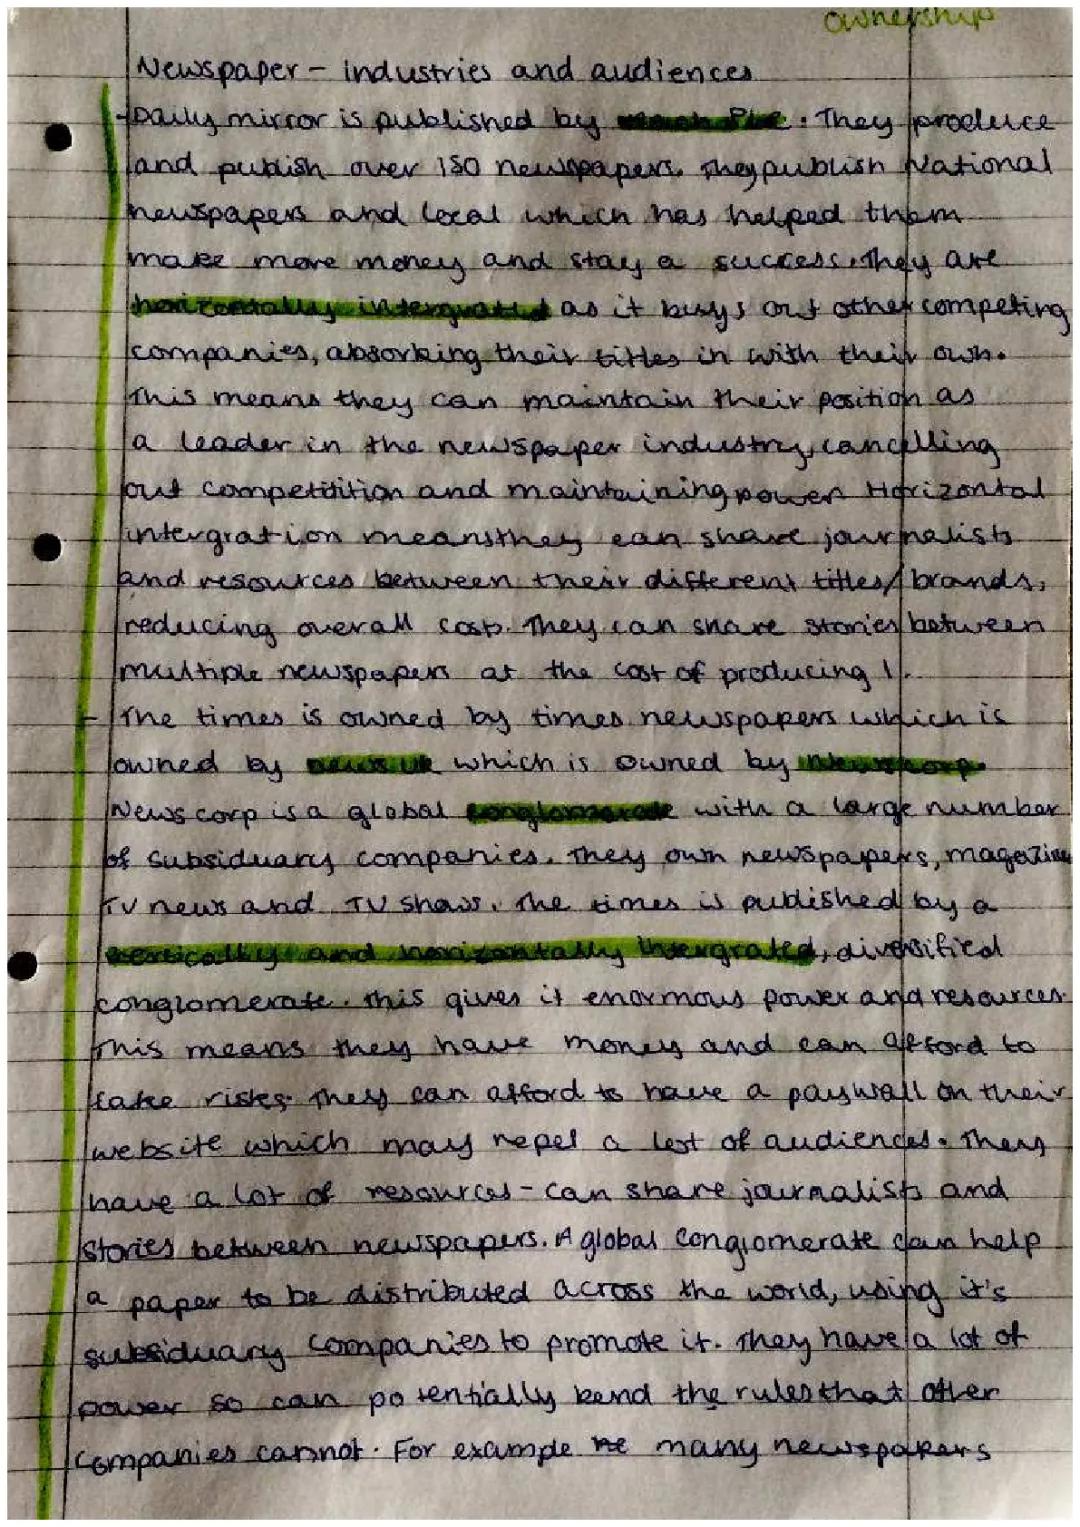 ownership
Newspaper - industries and audiences
- Daily mirror is published by reach Plc. They produce
and publish over 150 newspapers. They publish National
newspapers and local which has helped them
make more money and stay a success. They are
horizontally intergrated as it buys out other competing
companies, absorbing their titles in with their own.
This means they can maintain their position as
a leader in the newspaper industry, cancelling
out competitition and maintaining power. Horizontal
intergration means they can share journalists
and resources between their different titles/brands,
reducing overall costs. They can share stories between
multiple newspapers at the cost of producing 1.
- The times is owned by times newspapers which is
owned by news uk which is owned by Newscorp.
News corp is a global conglomerate with a large number
of subsiduary companies. They own newspapers, magazines
TV news and TV shows. The times is published by a
vertically and horizontally intergrated, diversified
conglomerate. This gives it enormous power and resources.
This means they have money and can afford to
take risks. They can afford to have a paywall on their
website which may repel a lot of audiences. They
have a lot of resources - can share journalists and
stories between newspapers. A global conglomerate can help
a paper to be distributed across the world, using it's
subsiduary companies to promote it. They have a lot of
power so can potentially bend the rules that other
companies cannot. For example many newspapers